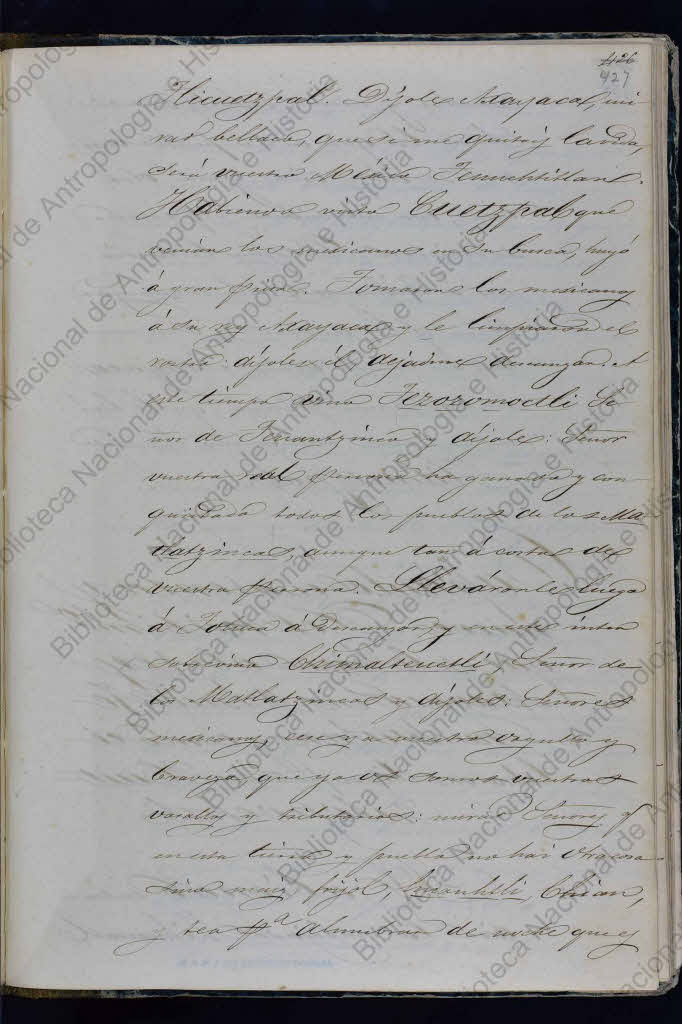 426
427
Tlicuetzpal. Díjole Axayacatl, mi-
rad bellaco, que si me quitáis la vida,
será vuestra México Tenuchtitlan.
Habiendo visto Cuetzpal que
venian los mexicanos en su busca, huyó
á gran prisa. Tomaron los mexicanos
á su rey Axayaca y le limpiaron el
rostro: díjoles él, dejadme descanzar. A
este tiempo vino Tezozomoctli Se-
ñor de y díjole: Señor
vuestra real persona ha ganado y con-
quistado todos los pueblos de los Ma-
tlatzincas, aunque tan á costa de
vuestra persona. Lleváronle luego
á Toluca á descanzar, y en este inter
sobrevino Chimalteuctli, Señor de
los Matlatzincas y díjoles: Señores
mexicanos, cese ya vuestro orgullo y
braveza, que ya os somos vuestros
vasallos y tributarios: mirad Señores q.
en esta tierra y pueblo no hai otra cosa
sino maiz, frijol, huauhtli, Chian,
y tea pa. alumbrar de noche que es